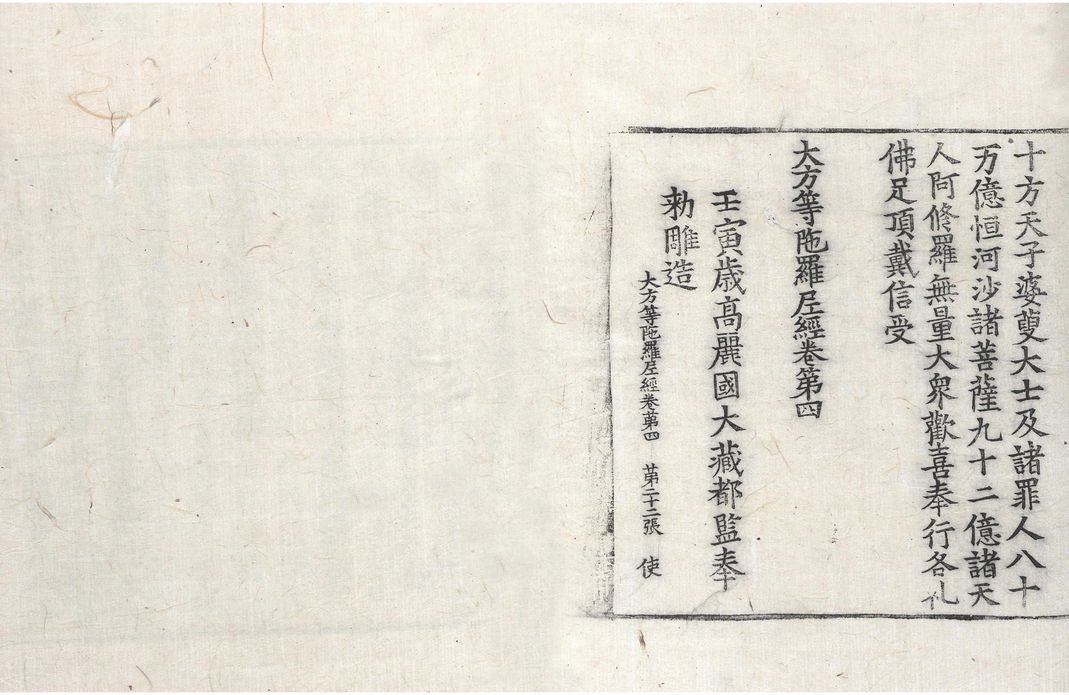 十方天子婆藪大士及諸罪人八十
万億恒河沙諸菩薩九十二億諸天
人阿修羅無量大衆歡喜奉行各礼
佛足頂戴信受
大方等陁羅尼經卷第四
壬寅歲高麗國大藏都監奉
勑雕造
大方等陁羅尼經卷第四 第二十二張 使